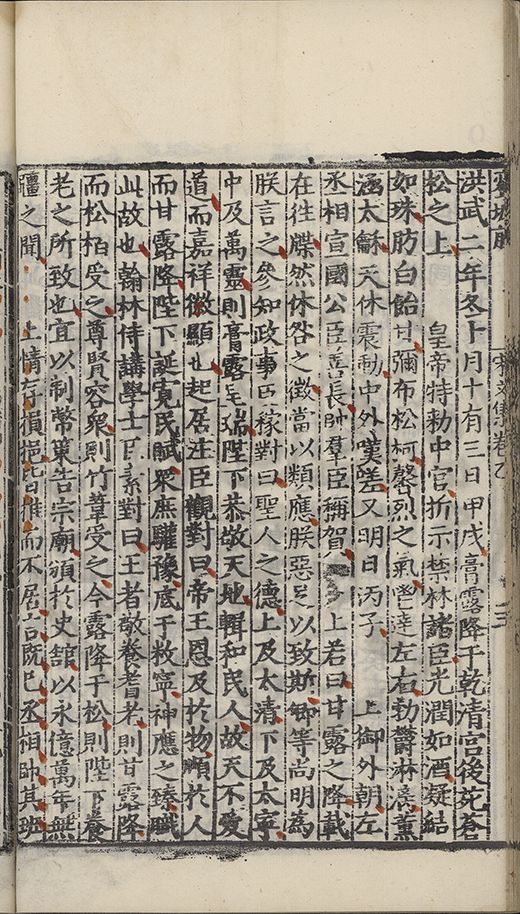 宋文集卷
洪武二年冬十月十有三日甲戌膏露降于乾清宮後苑蒼
松之上　皇帝特勑中官折示禁林諸臣光潤如酒凝結
如珠肪白飴甘彌布松柯馨烈之氣鬯達左右勃鬱淋漓薰
涵太龢天休震動中外嘆嗟又明日丙子　上御外朝左
丞相宣國公臣善長帥羣臣稱賀　上若曰甘露之降載
在徃牒然休咎之徵當以類應朕惡足以致斯卿等尚明為
朕言之參知政事臣稼對曰聖人之德上及太清下及太寧
中及萬靈則膏露毛瑞陛下恭敬天地輯和民人故天不愛
道而嘉祥徵顯也起居注臣觀對曰帝王恩及於物順於人
而甘露降陛下誕寬民賦眾庶驩豫底于敉寧神應之臻職
此故也翰林侍講學士臣素對曰王者敬養耆老則甘露降
而松栢受之尊賢容衆則竹葦受之今露降于松則陛下養
老之所致也宜以制幣策告宗廟頒於史舘以永億萬年無
疆之聞　上情存損挹皆推而不居言既已丞相帥其班